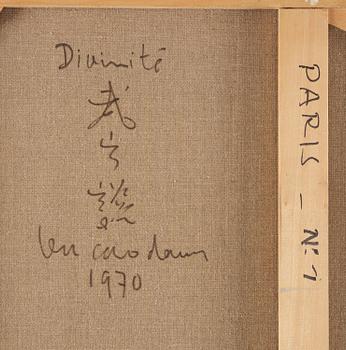 Divinité
武
高
談
Vu cao dam
1970
PARIS _ N° 1